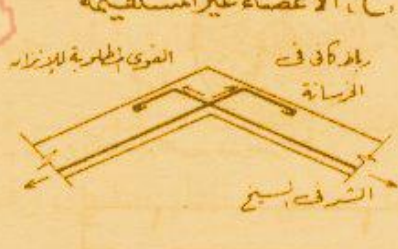 (ح) الأعضاء غير المستقيمة
القوى المطلوبة للإتزان
رباط كافى فى
الخرسانة
الشد فى السيخ